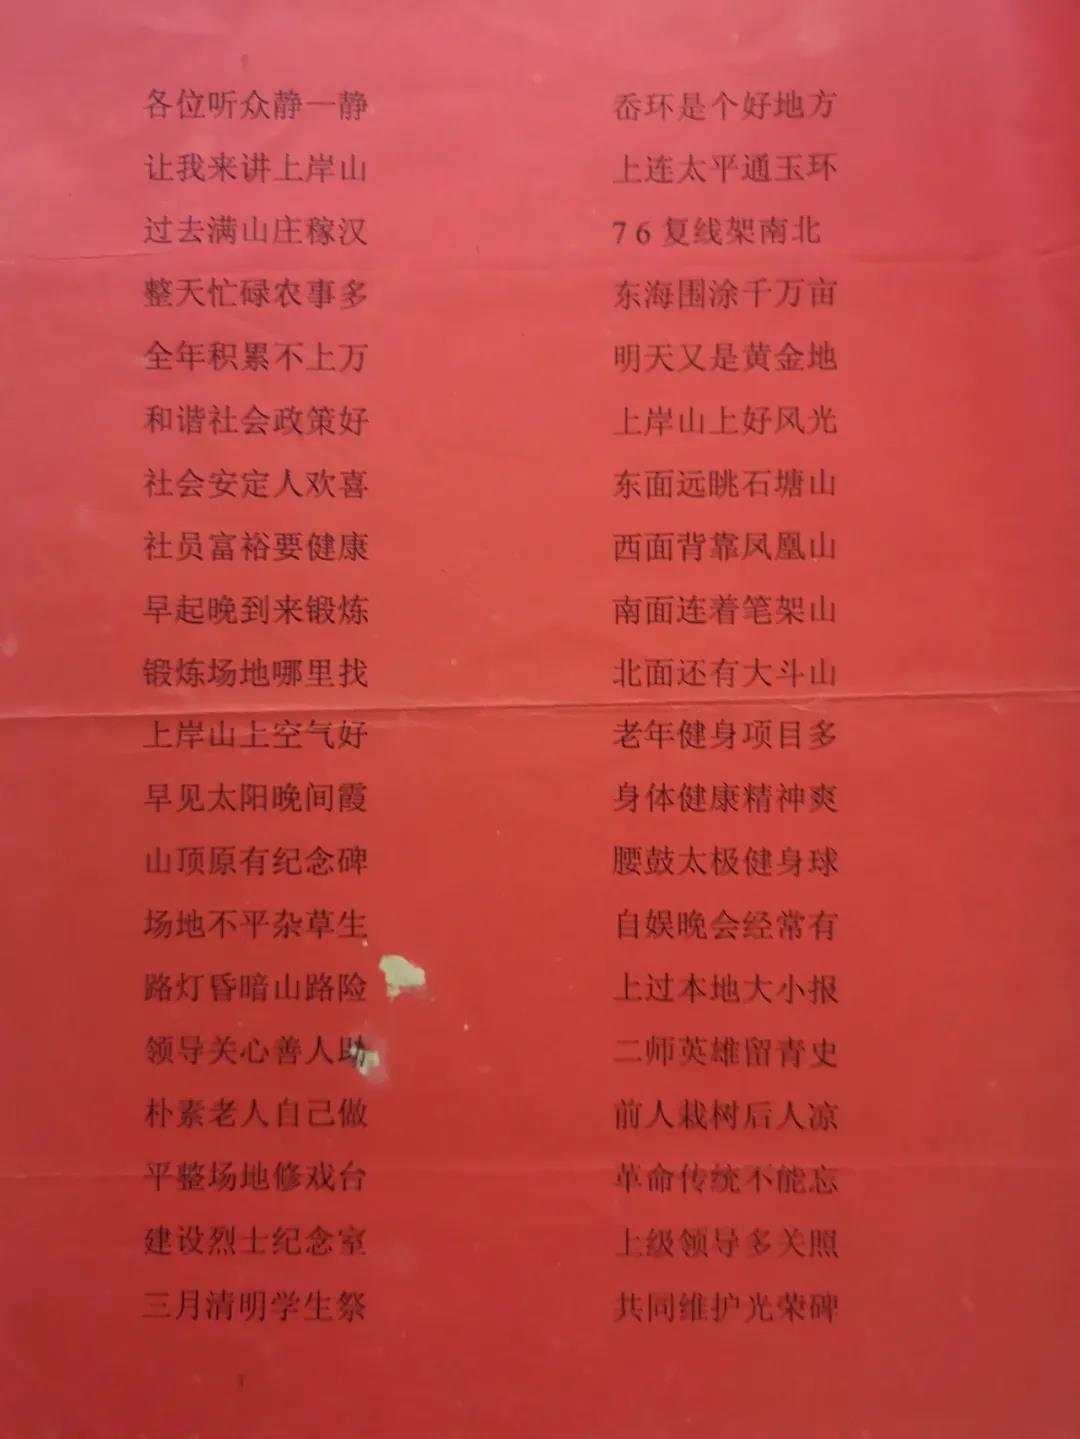 各位听众静一静
让我来讲上岸山
过去满山庄稼汉
整天忙碌农事多
全年积累不上万
和谐社会政策好
社会安定人欢喜
社员富裕要健康
早起晚到来锻炼
锻炼场地哪里找
上岸山上空气好
早见太阳晚间霞
山顶原有纪念碑
场地不平杂草生
路灯昏暗山路险
领导关心善人助
朴素老人自己做
平整场地修戏台
建设烈士纪念室
三月清明学生祭
岙环是个好地方
上连太平通玉环
76复线架南北
东海围涂千万亩
明天又是黄金地
上岸山上好风光
东面远眺石塘山
西面背靠凤凰山
南面连着笔架山
北面还有大斗山
老年健身项目多
身体健康精神爽
腰鼓太极健身球
自娱晚会经常有
上过本地大小报
二师英雄留青史
前人栽树后人凉
革命传统不能忘
上级领导多关照
共同维护光荣碑